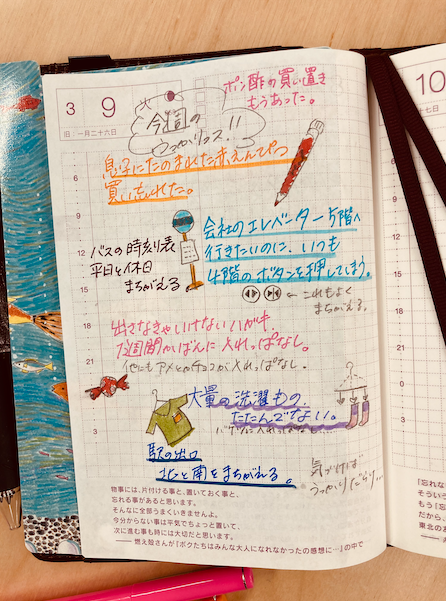 3 9
旧 一月二十六日
ポン酢の買い置き
もうあった。
今週の
うっかりさん!!
息子にたのまれた赤えんぴつ
買い忘れた。
バスの時刻表
平日と休日
まちがえる。
会社のエレベーター5階へ
行きたいのに、いつも
4階のボタンを押してしまう。
←これもよく
まちがえる。
出さなきゃいけないハガキ、
1週間かばんに入れっぱなし。
他にもアメとかチョコが入れっぱなし。
大量の洗濯もの、
たたんでない。
駅の出口
北と南をまちがえる。
気づけば
うっかりだらけ…
6
9
12
15
18
21
3
物事には、片付ける事と、置いておく事と、
忘れる事があると思います。
そんなに全部うまくいきませんよ。
今分からない事は平気でちょっと置いて、
次に進む事も時には大切だと思います。
──燃え殻さんが『ボクたちはみんな大人になれなかったの感想に…』の中で
10
十七日
「忘れな
そうい
もう「忘
だから、
東北のあ